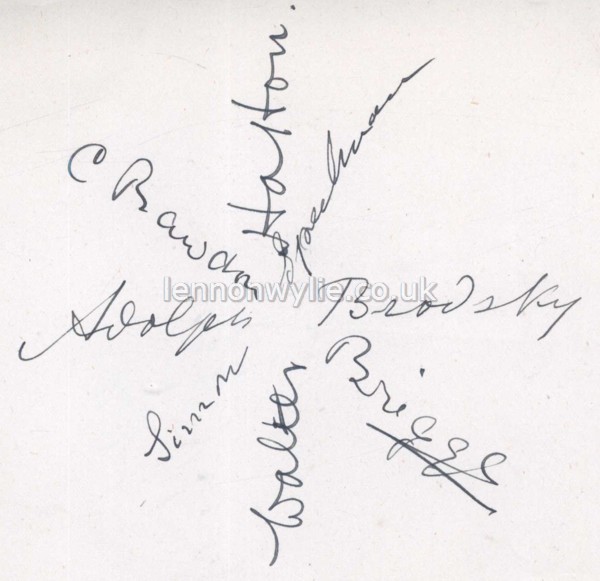 C Rawdon Briggs
Walter Hatton
Simon Speelman
Adolph Brodsky
lennonwylie.co.uk